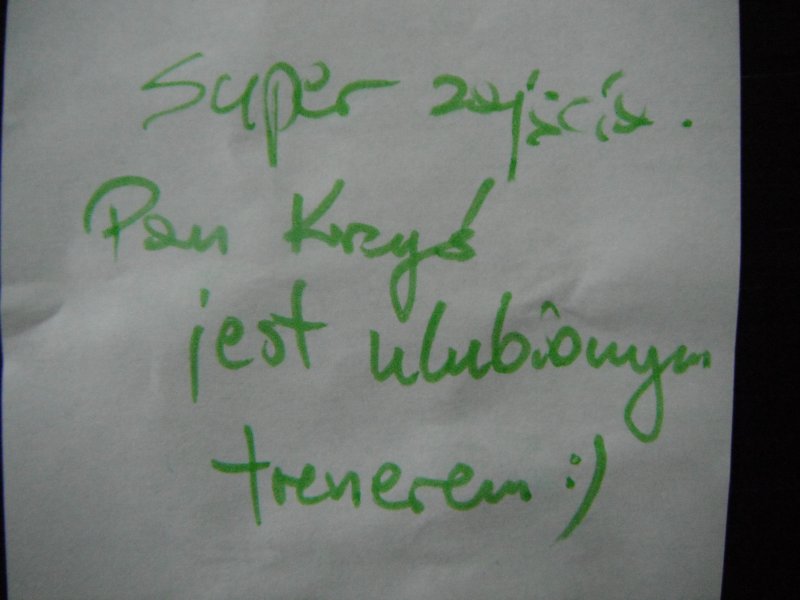 Super zajęcia.
Pan Krzyś
jest ulubionym
trenerem :)